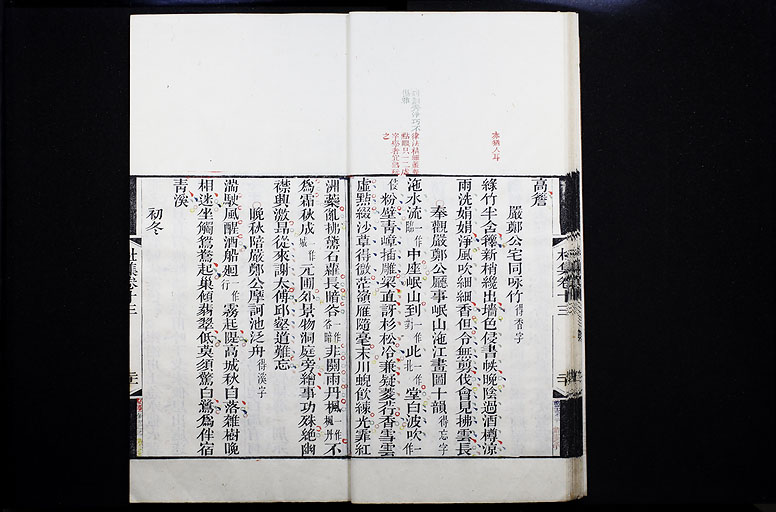 高詹
嚴鄭公宅同咏竹得香字
綠竹半含籜新梢纔出墻色侵書帙晚陰過酒樽涼
雨洗娟娟淨風吹細細香但令無剪伐會見拂雲長
奉觀嚴鄭公廳事岷山沲江畫圖十韻得忘字
沲水流一作臨中座岷山到一作對此一作北堂白波吹一作
侵粉壁青嶂插雕梁直訝杉松冷兼疑菱荇香雪雲
虛點綴沙草得微茫嶺雁隨毫末川蜺飲練光霏紅
洲蘂亂拂黛石蘿長暗谷一作谷暗非關雨丹楓一作楓丹不
為霜秋成一作城元圃外景物洞庭旁繪事功殊絕幽
襟興激昂從來謝太傅邱壑道難忘
晚秋陪嚴鄭公摩訶池泛舟得溪字
湍駛風醒酒船廻一作行霧起隄高城秋自落雜樹晚
相迷坐觸鴛鴦起巢傾翡翠低莫須驚白鷺為伴宿
青溪
初冬
杜集卷十三